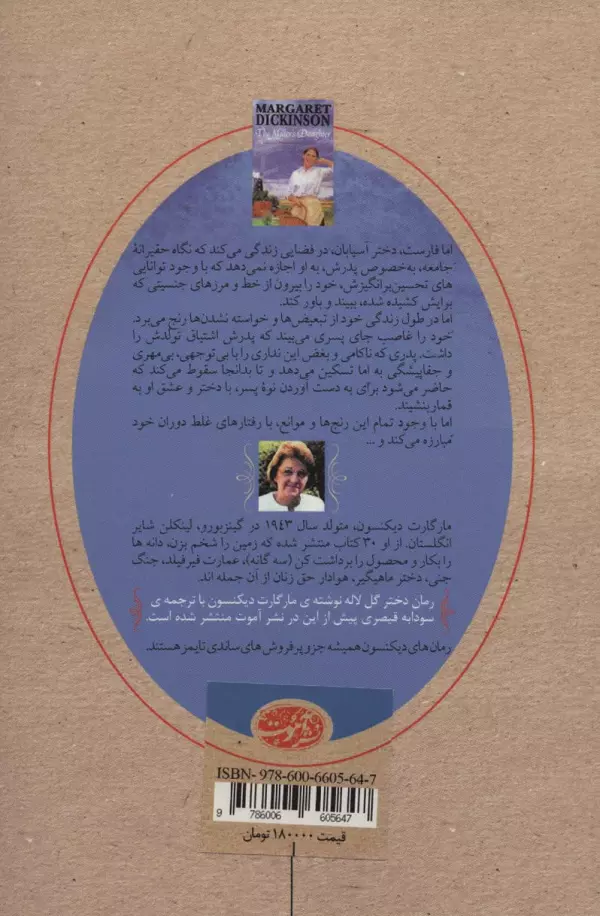 MARGARET
DICKINSON
The Miller's Daughter
اما فارست، دختر آسیابان، در فضایی زندگی می‌کند که نگاه حقیرانهٔ
جامعه، به‌خصوص پدرش، به او اجازه نمی‌دهد که با وجود توانایی
های تحسین‌برانگیزش، خود را بیرون از خط و مرزهای جنسیتی که
برایش کشیده شده، ببیند و باور کند.
اما در طول زندگی خود از تبعیض‌ها و خواسته نشدن‌ها رنج می‌برد.
خود را غاصب جای پسری می‌بیند که پدرش اشتیاق تولدش را
داشت. پدری که ناکامی و بغض این نداری را با بی‌توجهی، بی‌مهری
و جفاپیشگی به اما تسکین می‌دهد و تا بدانجا سقوط می‌کند که
حاضر می‌شود برای به دست آوردن نوهٔ پسر، با دختر و عشق او به
قمار بنشیند.
اما با وجود تمام این رنج‌ها و موانع، با رفتارهای غلط دوران خود
مبارزه می‌کند و ...
مارگارت دیکنسون، متولد سال ۱۹۴۳ در گینزبورو، لینکلن شایر
انگلستان. از او ۳۰ کتاب منتشر شده که زمین را شخم بزن، دانه ها
را بکار و محصول را برداشت کن (سه گانه)، عمارت فیرفیلد، جنگ
جنی، دختر ماهیگیر، هوادار حق زنان از آن جمله اند.
رمان دختر گل لاله نوشته ی مارگارت دیکنسون با ترجمه ی
سودابه قیصری پیش از این در نشر آموت منتشر شده است.
رمان‌های دیکنسون همیشه جزو پرفروش‌های ساندی تایمز هستند.
نشر آموت
ISBN- 978-600-6605-64-7
9 786006 605647
قیمت ۱۸۰۰۰۰ تومان